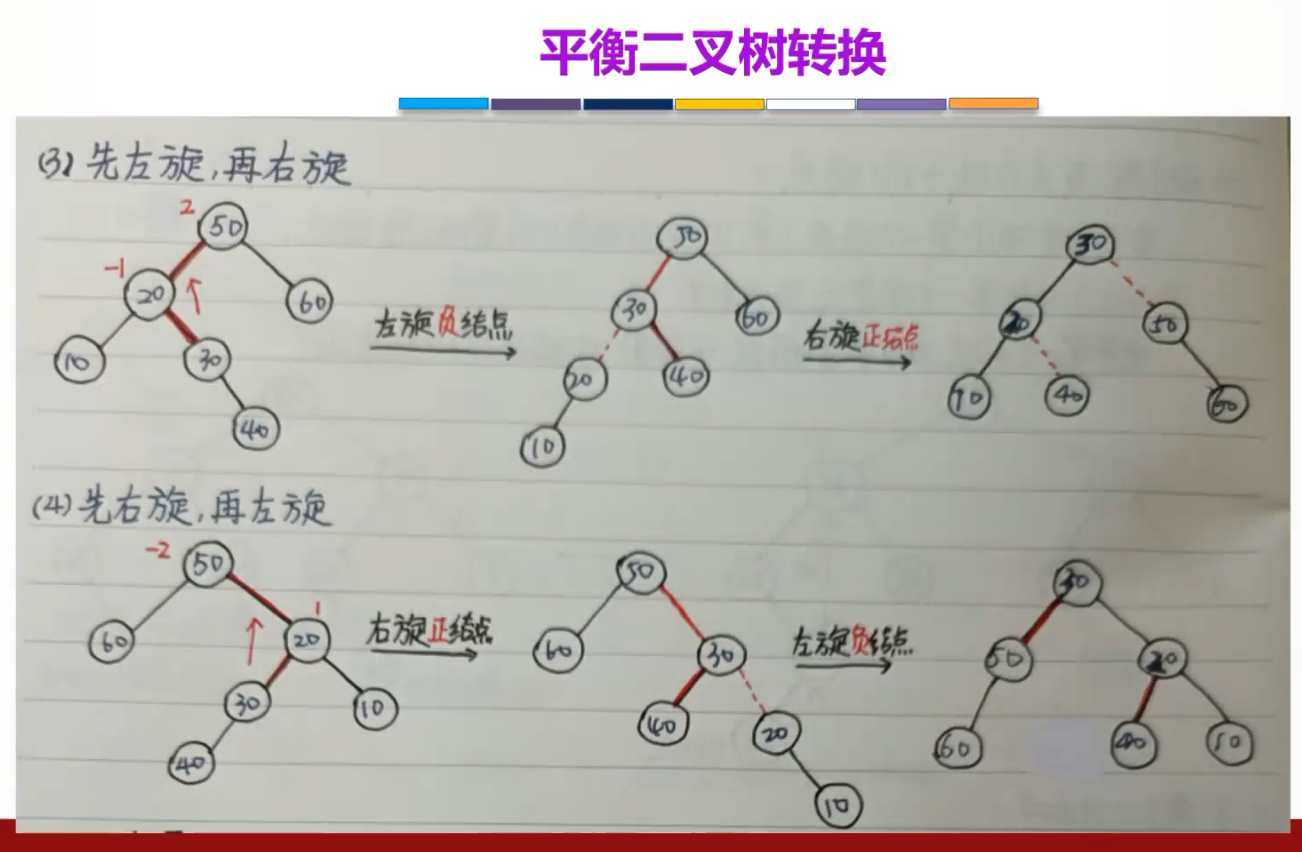 平衡二叉树转换
(3) 先左旋,再右旋
2
50
-1
20
60
10
30
40
左旋负结点
50
30
60
20
40
10
右旋正结点
30
20
50
10
40
60
(4) 先右旋,再左旋
-2
50
1
60
20
30
10
40
右旋正结点
50
60
30
40
20
10
左旋负结点
30
50
20
60
40
10